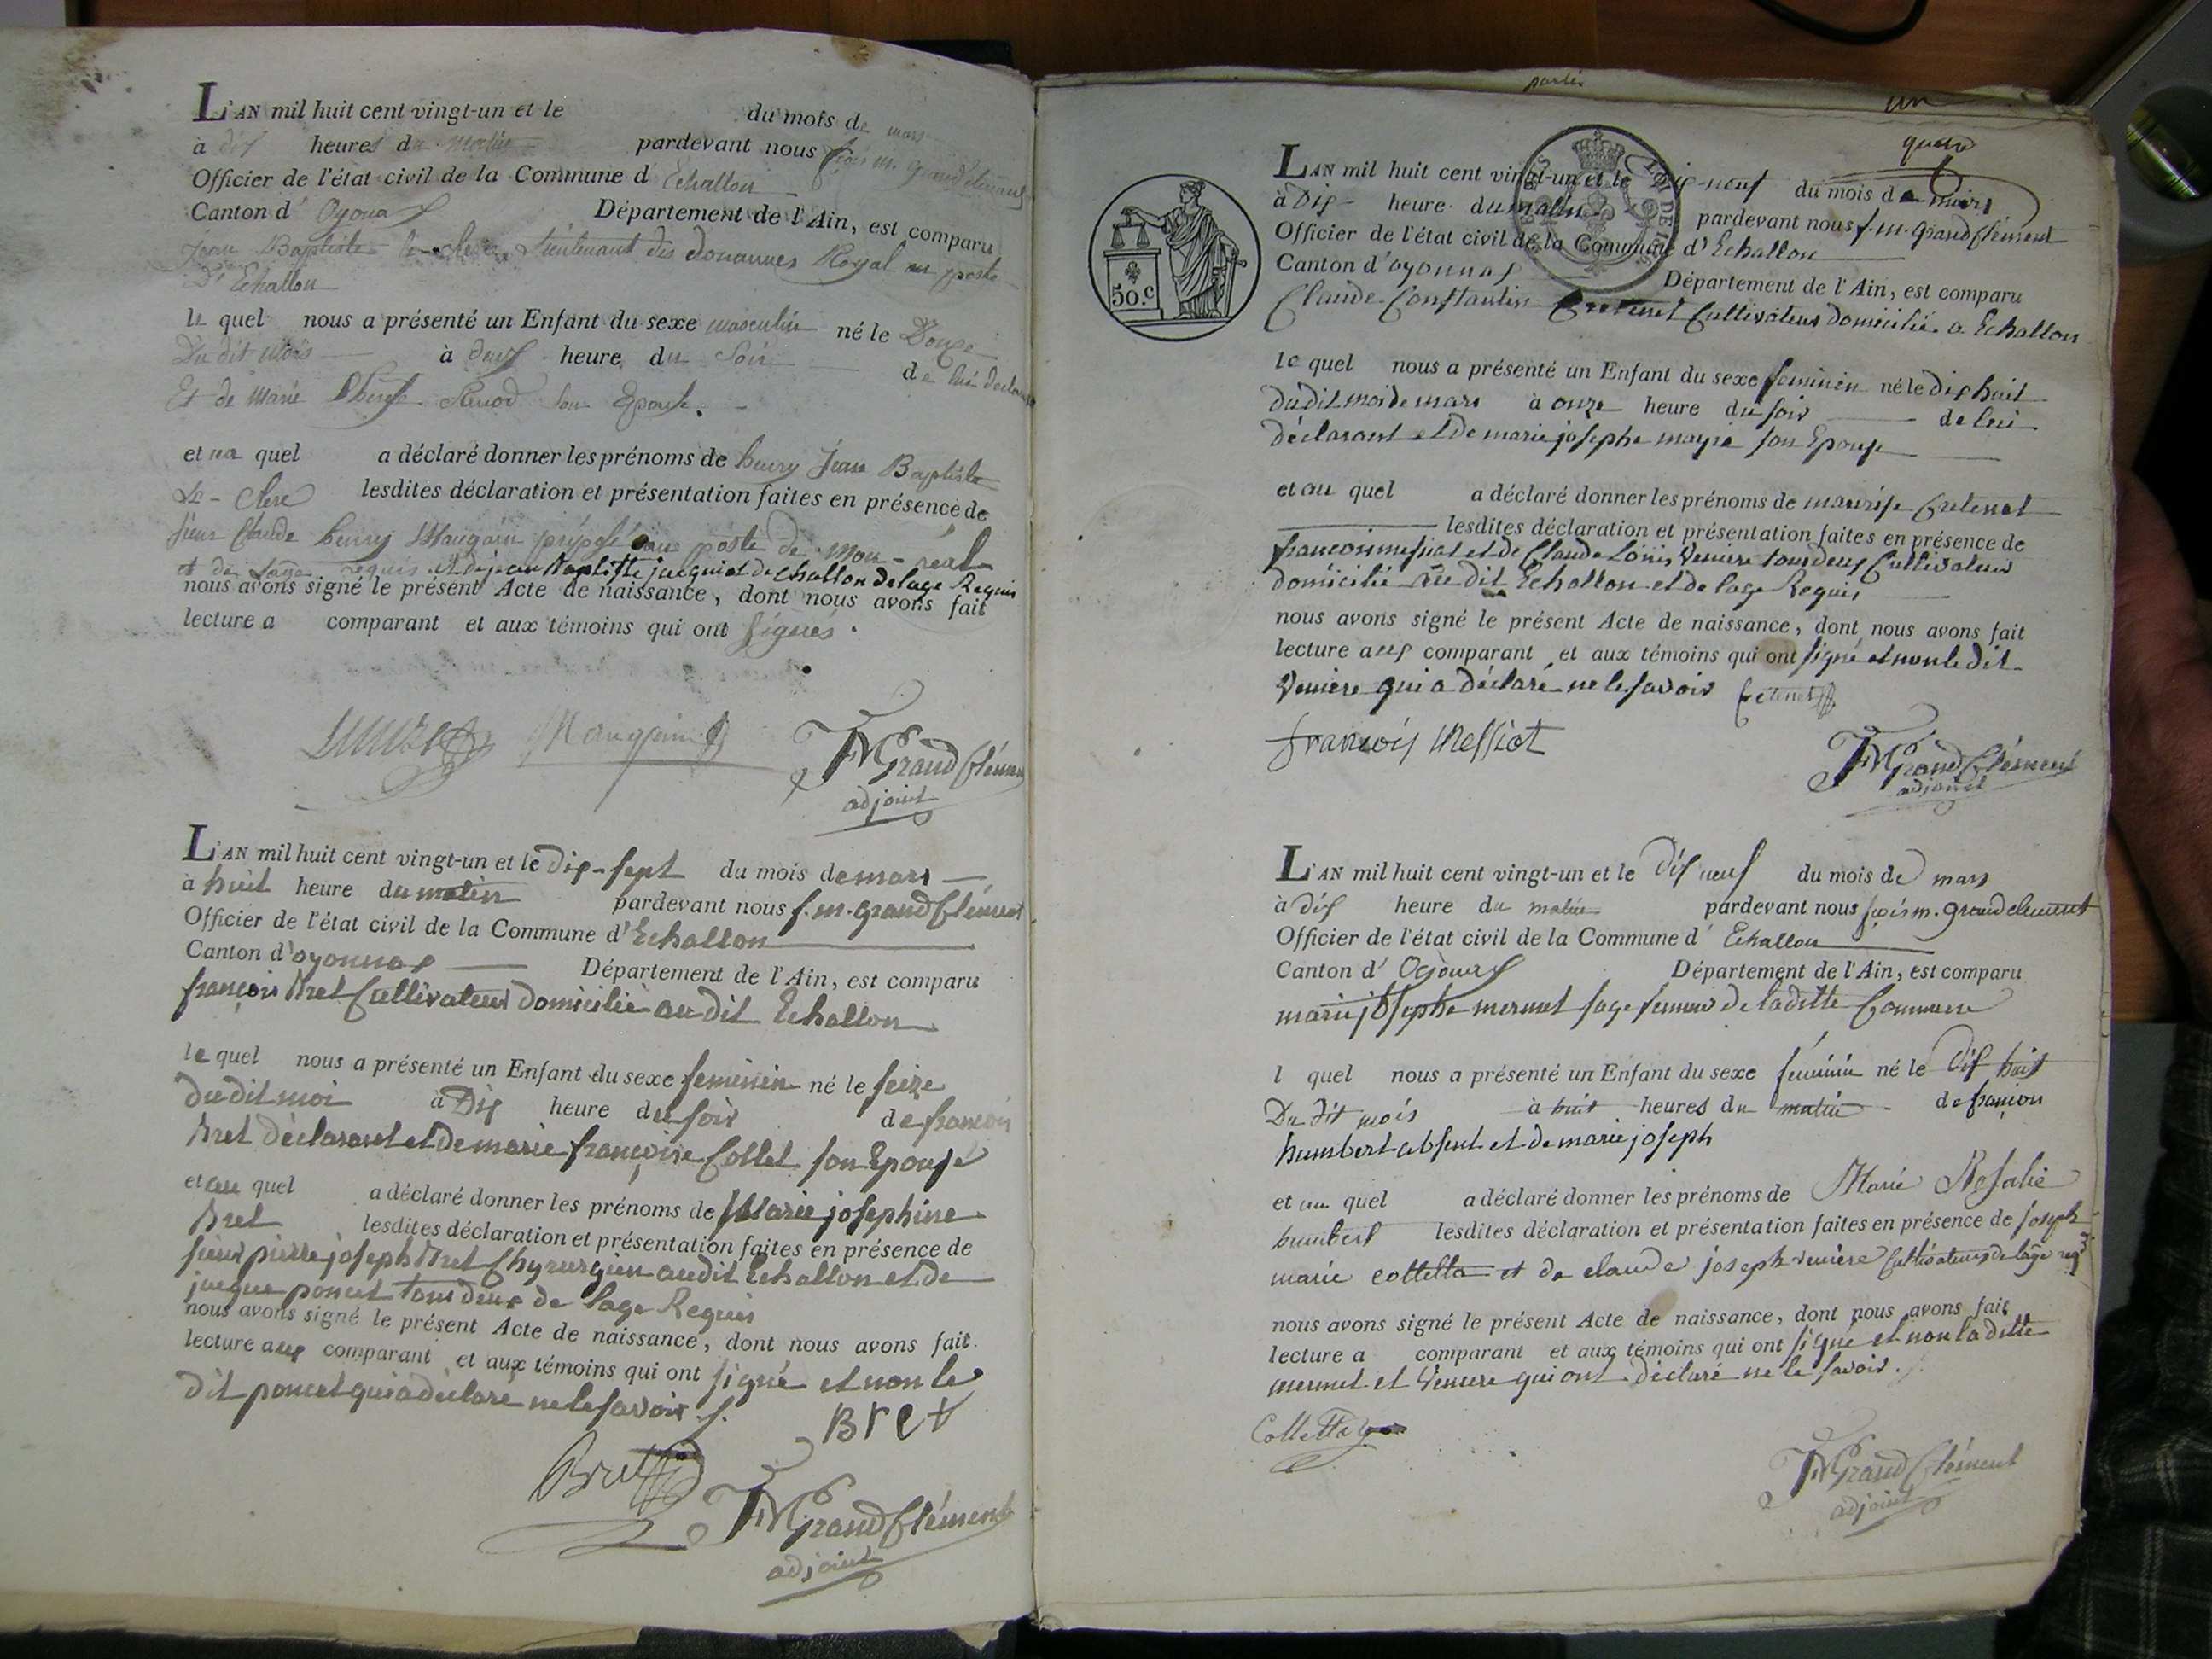 L'AN mil huit cent vingt-un et le du mois de mars
à dix heures du matin pardevant nous f.ois m. grandclement
Officier de l'état civil de la Commune d'Echallon
Canton d' Oyonax Département de l'Ain, est comparu
Jean Baptiste le clerc Lieutenant des douannes Royal en poste
D'Echallon
le quel nous a présenté un Enfant du sexe masculin né le Douze
Du dit mois à deux heure du Soir de lui declarant
Et de Marie Son Epouse.
et au quel a déclaré donner les prénoms de henry Jean Baptiste
Le-Clerc lesdites déclaration et présentation faites en présence de
sieur Claude henry Maugain préposé au poste de Mon-réal
et de l'age requis et dejean Baptiste jacquiot dechallon delage Requis
nous avons signé le présent Acte de naissance, dont nous avons fait
lecture a comparant et aux témoins qui ont signés.
Maugain FMGrandClément
adjoint
L'AN mil huit cent vingt-un et le dix-sept du mois de mars
à huit heure du matin pardevant nous f.m.grandClément
Officier de l'état civil de la Commune d'Echallon
Canton d'oyonnax Département de l'Ain, est comparu
françois Bret Cultivateur domicilié au dit Echallon
le quel nous a présenté un Enfant du sexe feminin né le seize
dudit moi à Dix heure du soir de francois
Bret déclarant et de marie françoise Collet son Epouse
et au quel a déclaré donner les prénoms de Marie josephine
Bret lesdites déclaration et présentation faites en présence de
sieur pierre joseph Bret Chyrurgien audit Echallon et de
jacque poncet tous deux de lage Requis
nous avons signé le présent Acte de naissance, dont nous avons fait
lecture aux comparant et aux témoins qui ont signé et non le
dit poncet qui a déclaré ne le savoir
Bret
Bret
FMGrandClément
adjoint
un
quatre
50.C
L'AN mil huit cent vingt-un et le dix-neuf du mois de mars
à Dix heure du matin pardevant nous f.m.grandClément
Officier de l'état civil de la Commune d'Echallon
Canton d'oyonnax Département de l'Ain, est comparu
Claude Constantin Cretenet Cultivateur domicilié a Echallon
le quel nous a présenté un Enfant du sexe feminin né le dix huit
dudit moi de mars à onze heure du soir de lui
déclarant et de marie josephe mayré son Epouse
et au quel a déclaré donner les prénoms de maurise Cretenet
lesdites déclaration et présentation faites en présence de
francois messiat et de Claude Louis Veniere tous deux Cultivateur
domicilié au dit Echallon et de lage Requis
nous avons signé le présent Acte de naissance, dont nous avons fait
lecture aux comparant et aux témoins qui ont signé et non le dit
Veniere qui a déclaré ne le savoir Cretenet
françois Messiat
FMGrandClément
adjoint
L'AN mil huit cent vingt-un et le dix neuf du mois de mars
à dix heure du matin pardevant nous f.ois m. grandclement
Officier de l'état civil de la Commune d' Echallon
Canton d' Oyonax Département de l'Ain, est comparu
marie josephe mermet sage femme de la ditte Commune
l quel nous a présenté un Enfant du sexe féminin né le dix huit
Du dit mois à huit heures du matin de françois
humbert absent et de marie joseph
et au quel a déclaré donner les prénoms de Marie Rosalie
humbert lesdites déclaration et présentation faites en présence de joseph
marie colletta et de claude joseph veniere Cultivateurs de lage req
nous avons signé le présent Acte de naissance, dont nous avons fait
lecture a comparant et aux témoins qui ont signé et non la ditte
mermet et Veniere qui ont déclaré ne le savoir.
Colletta
FMGrandClément
adjoint